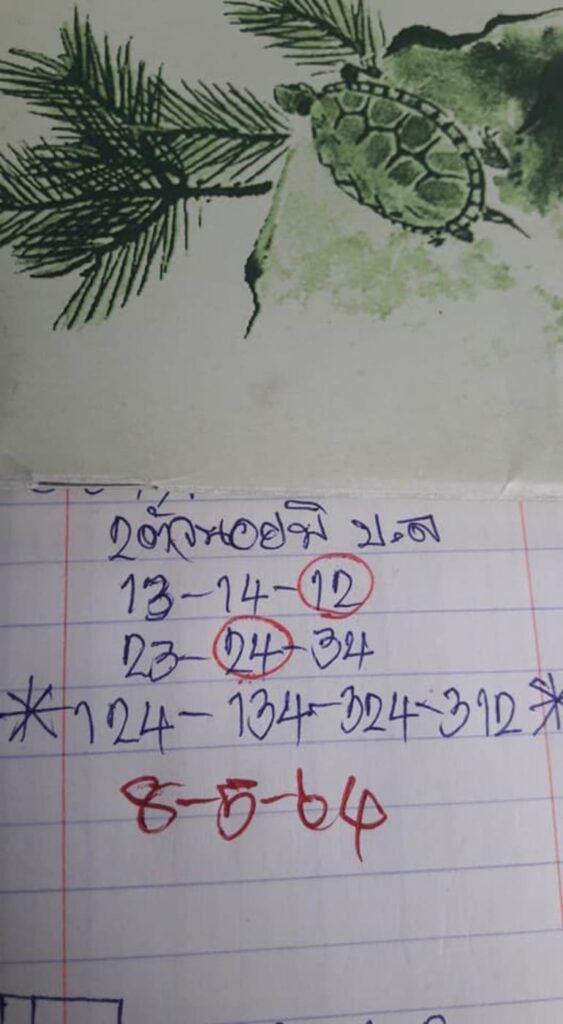 2ตัวหอยมี บ.ล
13-14-12
23-24-34
*124-134-324-312*
8-5-64